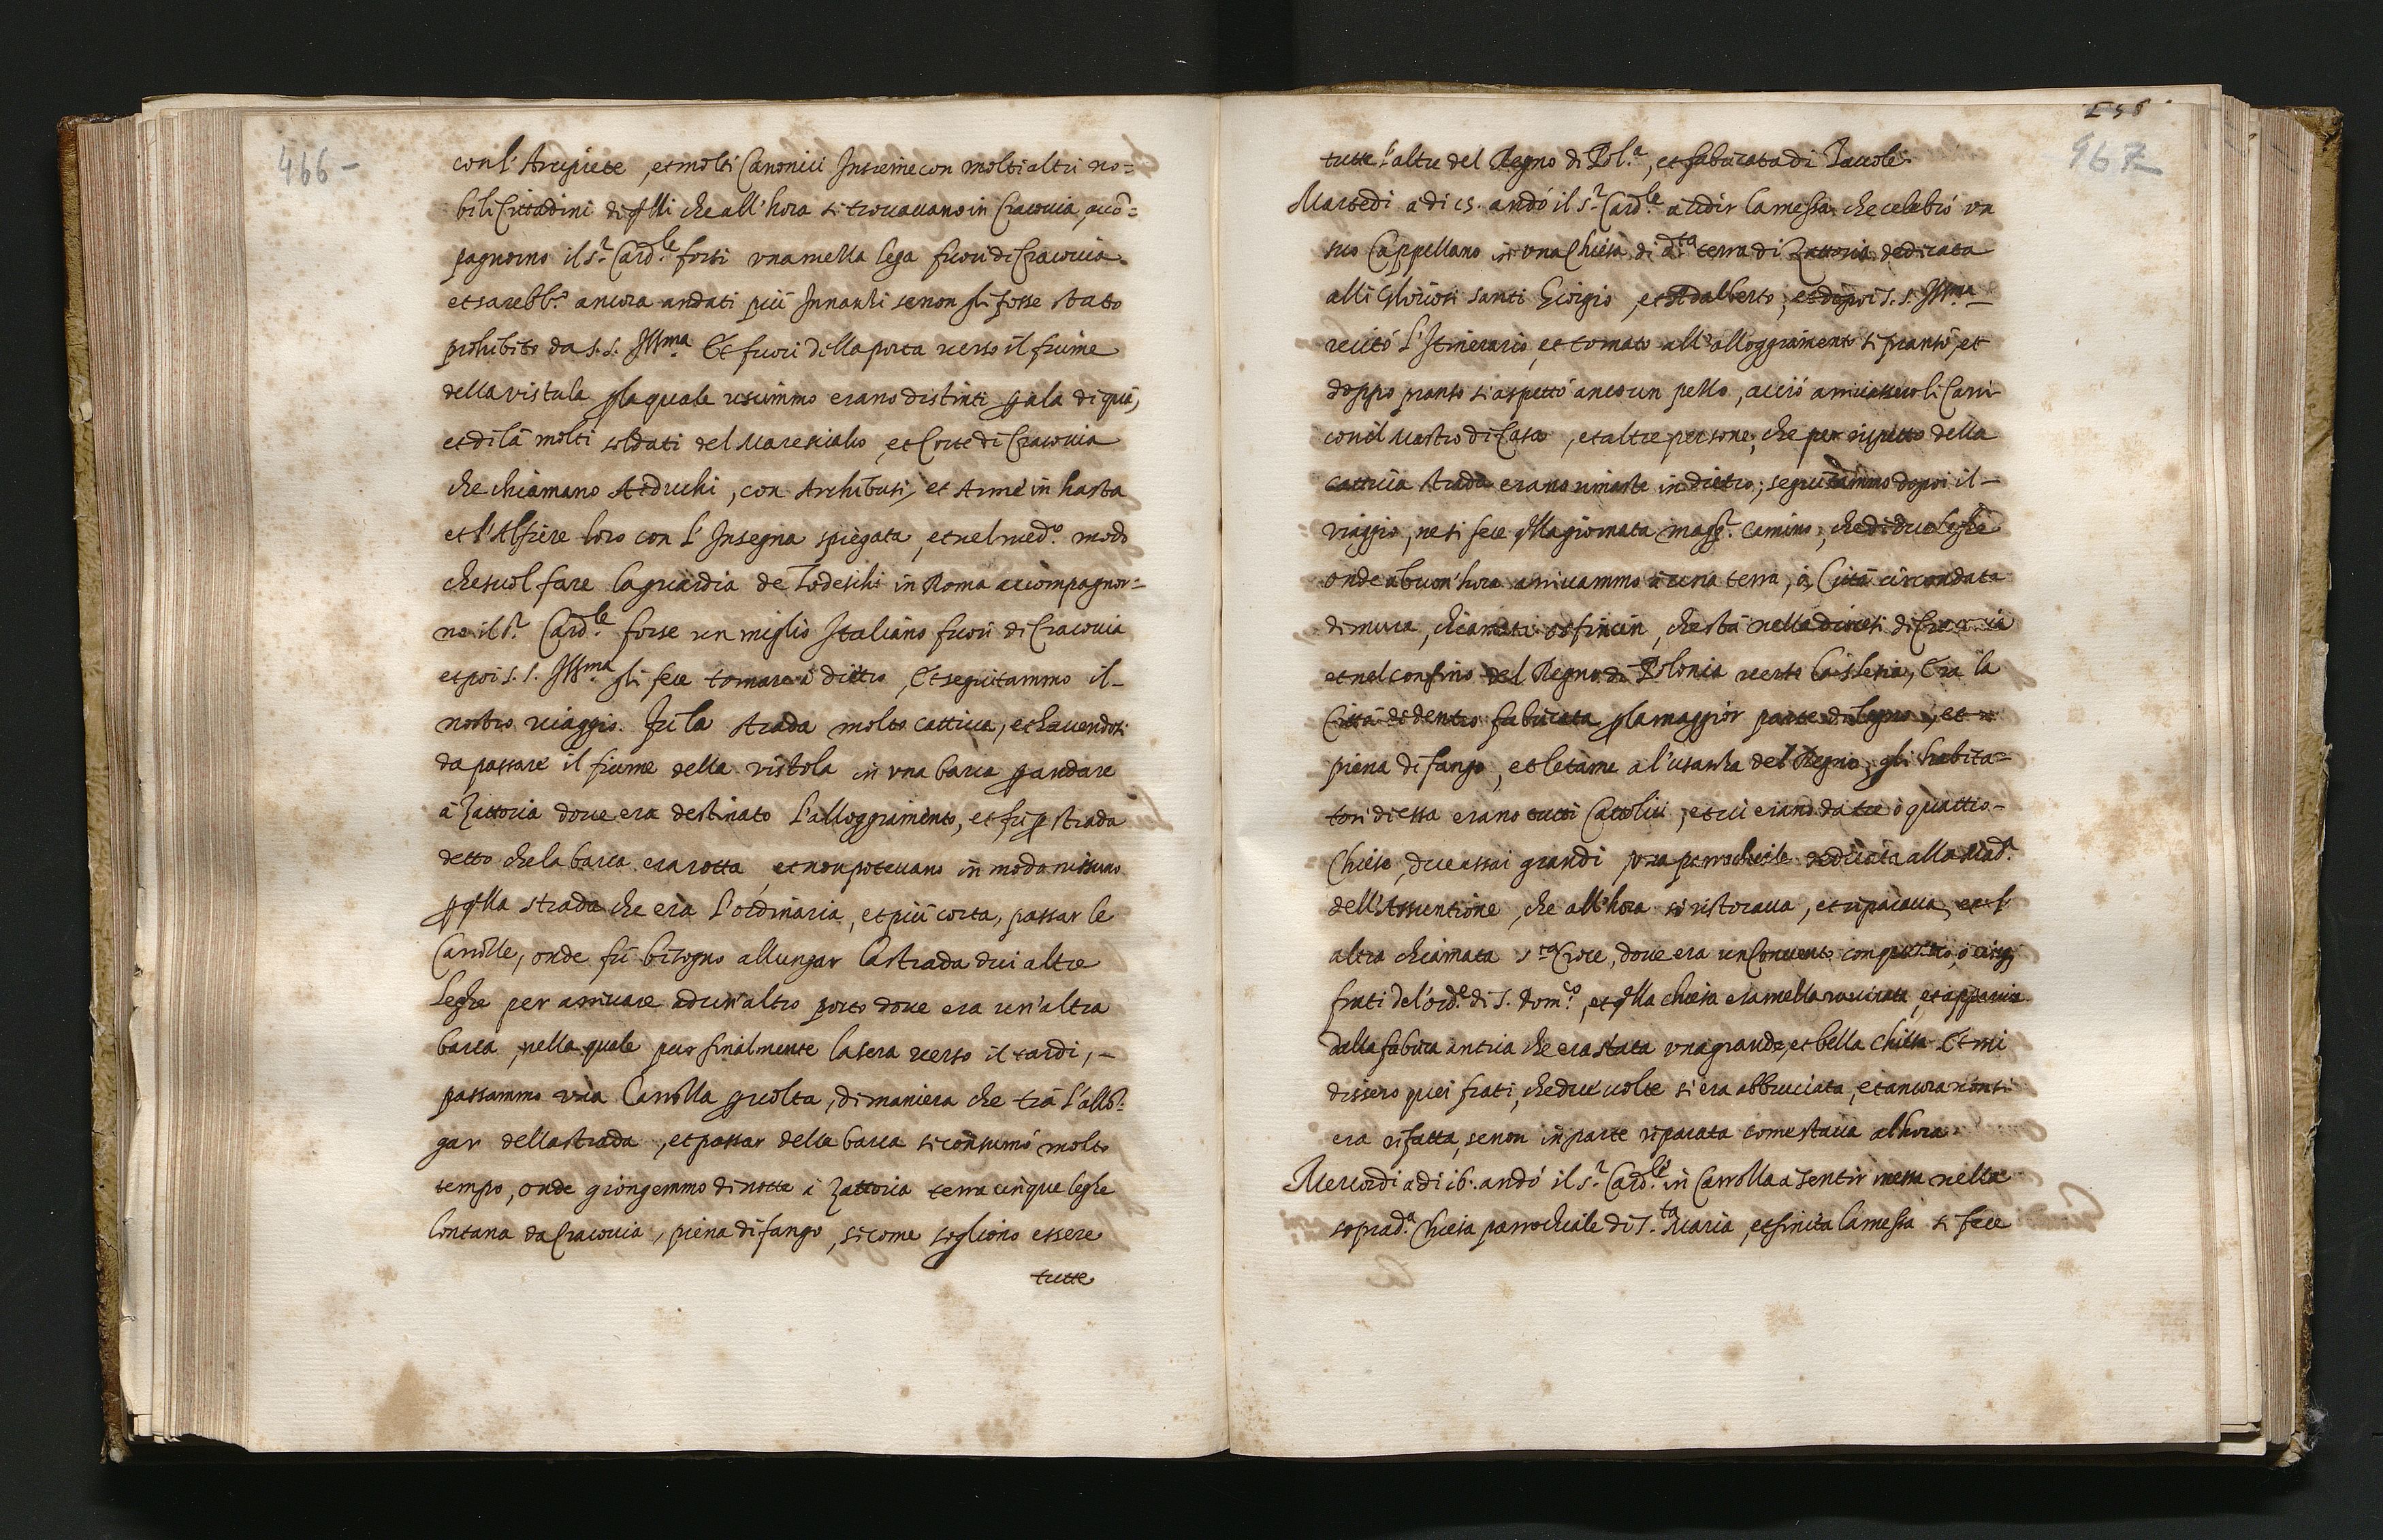 466-
con l'Arcipiete, et molti Canonici Insieme con molti altri no=
bili Cittadini di qlli che all'hora si trovavano in Cracovia, accō=
pagnorno il s.r Card.le forsi una mezza lega fuori di Cracovia
et sarebb.o ancora andati più Innanzi se non gli fosse stato
prohibito da s.s. Ill.ma Et fuori della porta verso il fiume
della vistula p la quale uscimmo erano distinti p ala di quà,
et di là molti soldati del Maresciallo, et Corte di Cracovia
che chiamano Aiduchi, con Archibusi, et Arme in hasta
et l'Alfiere loro con l'Insegna spiegata, et nel med.o modo
che suol fare la guardia de Todeschi in Roma accompagnor=
no il s.r Card.le forse un miglio Italiano fuori di Cracovia
et poi s.s. Ill.ma gli fece tornare à dietro, Et seguitammo il-
nostro viaggio. Fu la strada molto cattiva, et havendosi
da passare il fiume della vistola in una barca p andare
à Zattoria dove era destinato l'alloggiamento, et fu p strada
detto che la barca era rotta, et non potevano in modo nissuno
p qlla strada che era l'ordinaria, et più corta, passar le
Carrozze, onde fù bisogno allungar la strada dui altre
leghe per arrivare ad un'altro porto dove era un'altra
barca, nella quale pur finalmente la sera verso il tardi,-
passammo una Carrozza p volta, di maniera che trà l'allō=
gar della strada, et passar della barca si consumò molto
tempo, onde giongemmo di notte à Zattoria terra cinque leghe
lontana da Cracovia, piena di fango, si come sogliono essere
tutte
467
tutte l'altre del Regno di Pol.a, et fabricata di Tavole.
Martedi a di 15. andò il s.r Card.le a udir la messa che celebrò un
suo Cappellano in una Chiesa di d.ta terra di Zattoria dedicata
alli Gloriosi santi Giorgio, et Adalberto, et dopoi s.s. Ill.ma
recitò l'Itinerario, et tornato all'alloggiamento si pranzò, et
doppo pranzo si aspettò anco un pezzo, acciò arrivassero li Carri
con il Mastro di Casa, et altre persone, che per rispetto della
cattiva strada erano rimaste in dietro; seguitammo dopoi il-
viaggio, ne si fece qlla giornata magg.r camino, che di due leghe
onde à buon'hora arrivammo à una terra, ò Città circondata
di mura, chiamata osfincin, che stà nella diocesi di Cracovia
et nel confino del Regno di Polonia verso la slesia, Era la
Città di dentro fabricata p la maggior parte di legno, et
piena di fango, et letame a l'usanza del Regno, gli habita=
tori di essa erano tutti Cattolici, et vi erano da tre ò quattro-
Chiese, due assai grandi, una parrochiale dedicata alla Mad.a
dell'Assuntione, che all'hora si ristorava, et riparava, et l'
altra chiamata s.ta Croce, dove era un Convento con quattro, ò cinq;
frati del'ord.e di S. Dom.co, et qlla chiesa era mezza rovinata, et appariva
dalla fabrica antica che era stata una grande, et bella Chiesa Et mi
dissero quei frati, che due volte si era abbruciata, et ancora non si
era rifatta, se non in parte riparata come stava alhora
Mercordi a di 16. andò il s.r Card.le in Carrozza a sentir messa nella
soprad.a Chiesa parrochiale di S.ta Maria, et finita la messa si fece